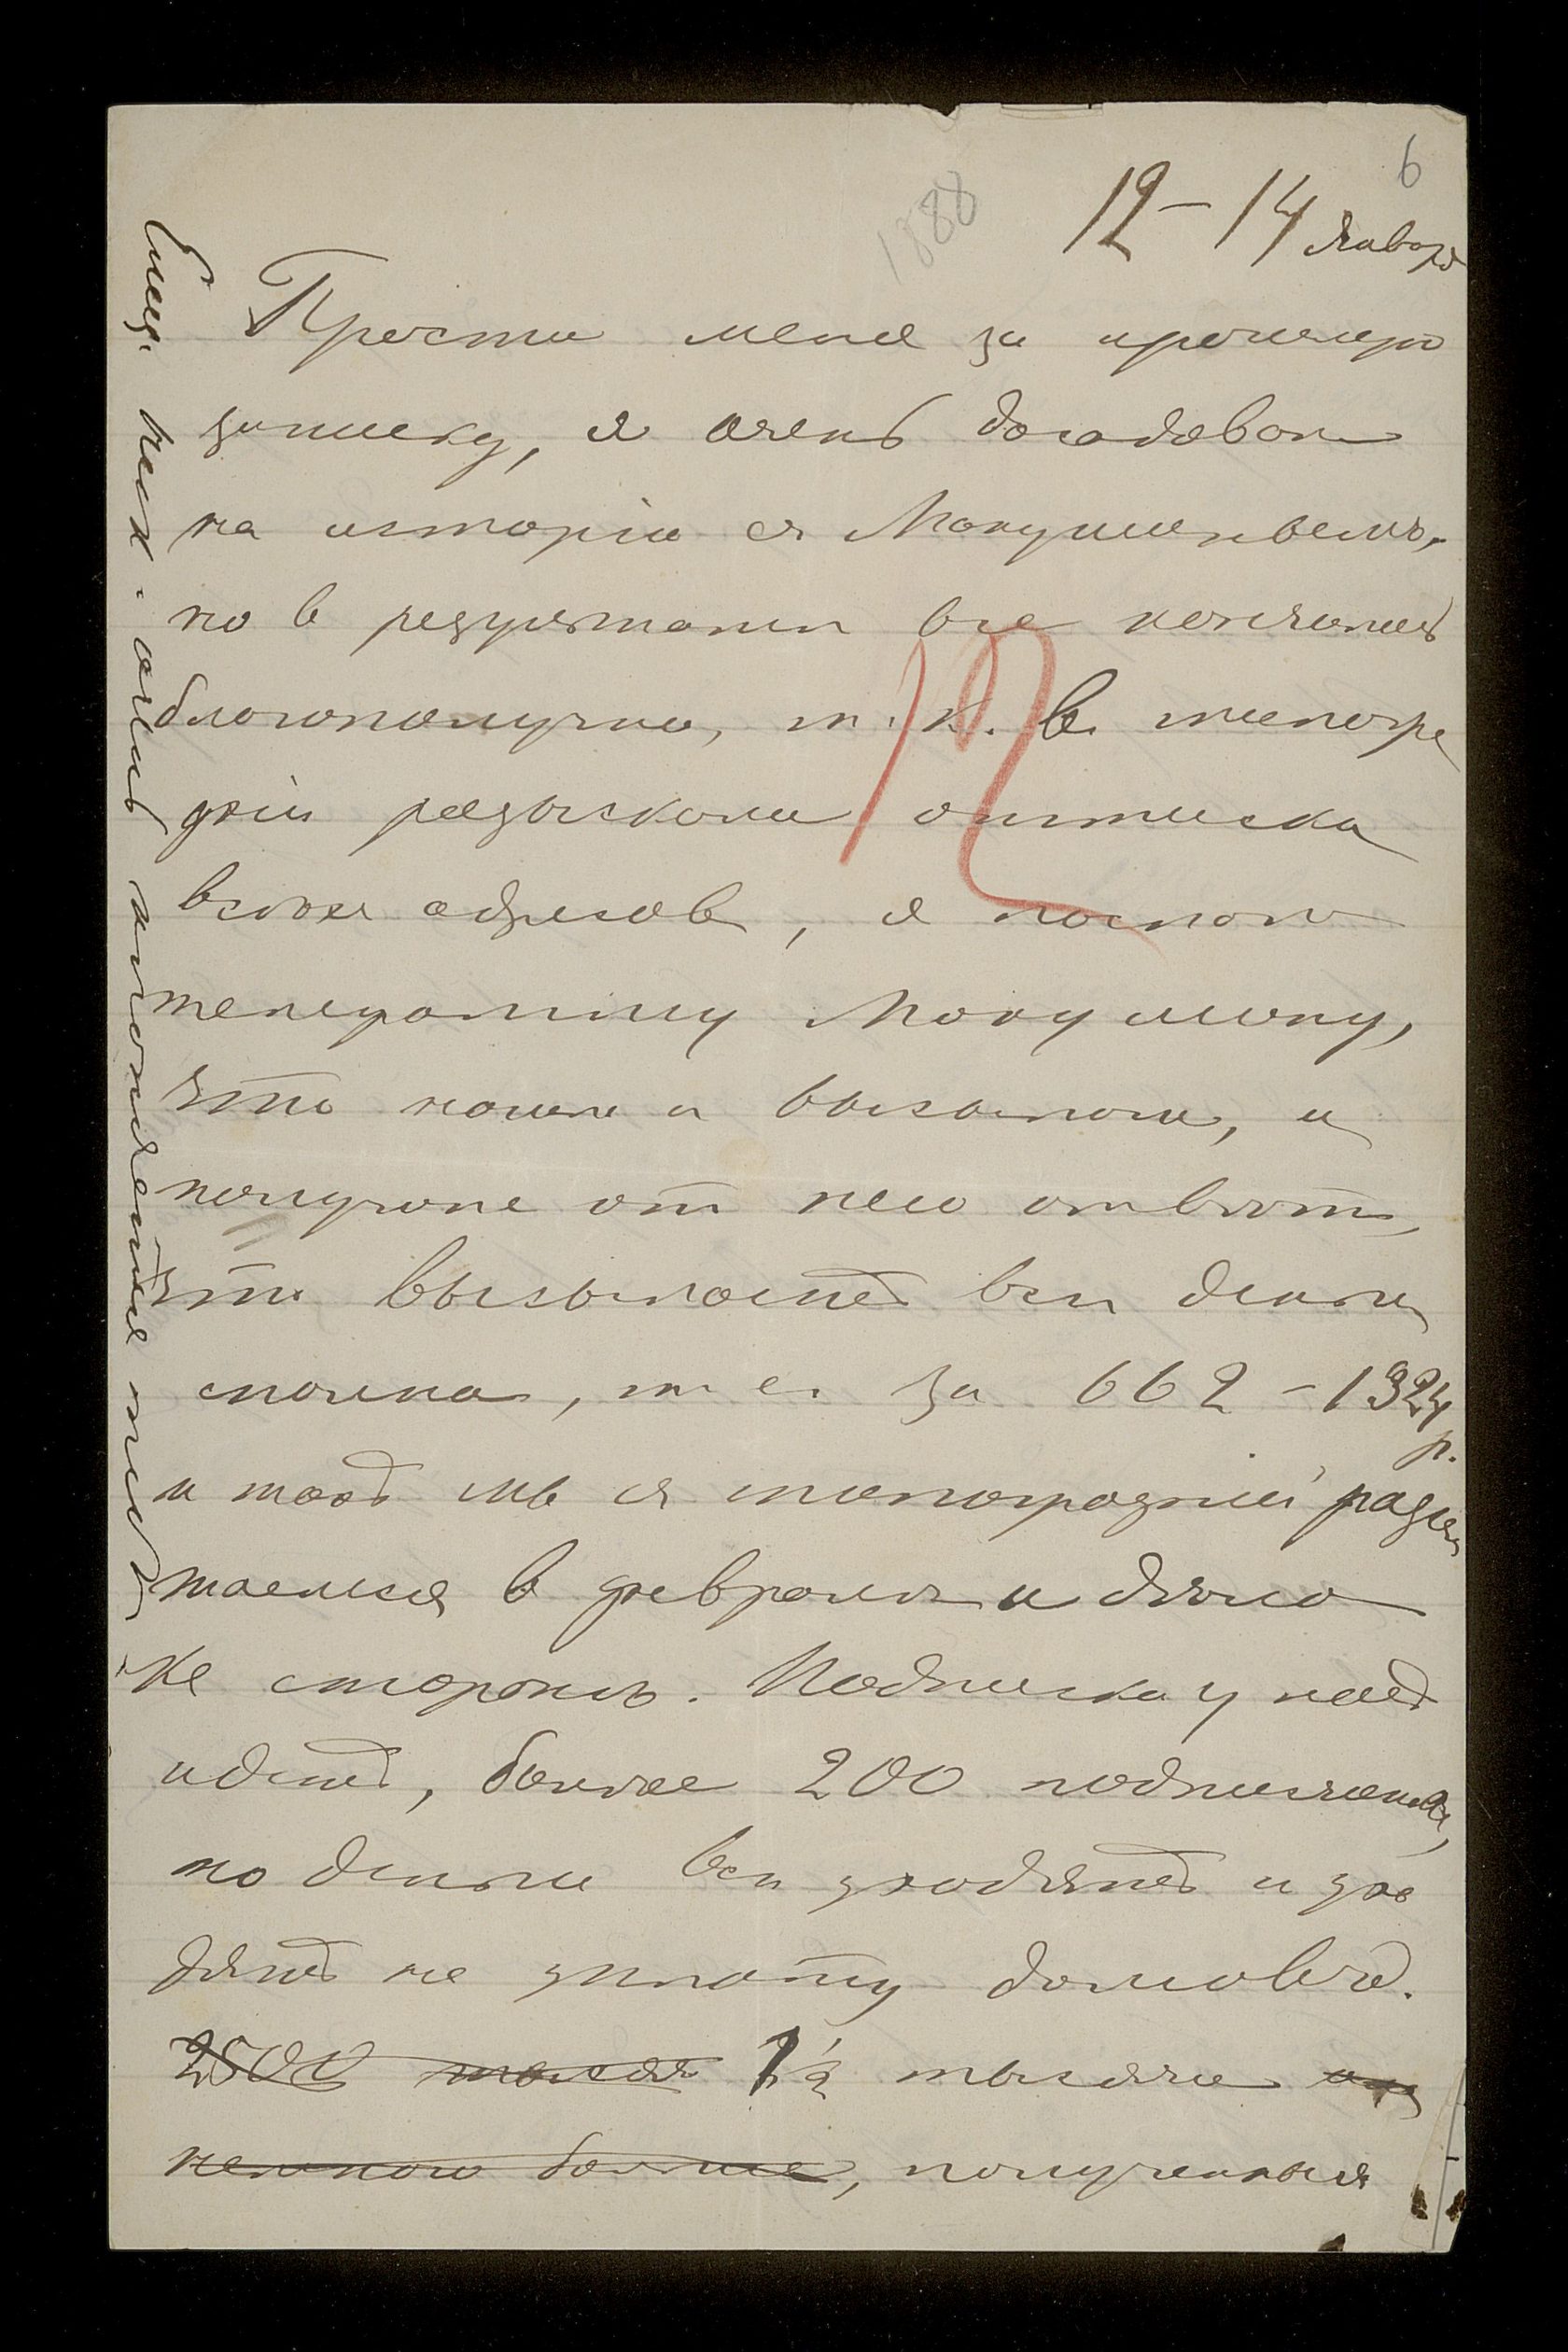 6
1888
12–14 Января
Прости меня за прошлую
записку, я очень досадовал
на исторію съ Макушинымъ,
но в результатѣ все кончилось
благополучно, т. к. в типогра
фіи разыскали оттиска
всѣхъ адресов, я послал
телеграмму Макушину,
что нашли и выслали, и
получил от него отвѣт,
что высылает всѣ деньги
сполна, т. е. за 662 – 1324
р.
и тогда мы съ типографіей расчи
таемся в февралѣ и дѣло
къ сторонѣ. Подписка у нас
идет, более 200 подписчиков,
но деньги всѣ уходят и ухо
дят на уплату долгов.
2500 тысяч 1½ тысячи или
немного больше, полученныя
12